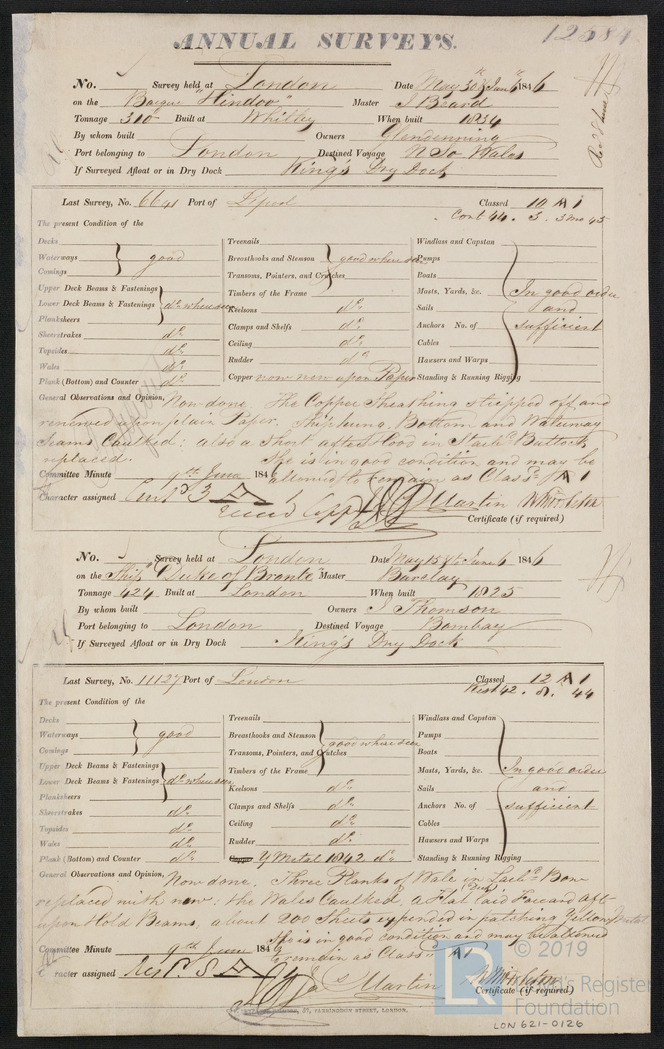 ANNUAL SURVEYS.
12684
No. Survey held at London Date May 30 & June 6 1846
on the Barque "Hindoo" Master J Beard
Tonnage 310 Built at Whitby When built 1834
By whom built Owners Glendenning
Port belonging to London Destined Voyage N So Wales
If Surveyed Afloat or in Dry Dock King's Dry Dock
Last Survey, No. 6641 Port of Lpool Classed 10 A 1
Cont 44. 3. 3 Mo 45
The present Condition of the
Decks
Waterways
Comings
good
Upper Deck Beams & Fastenings
Lower Deck Beams & Fastenings
Planksheers
do where seen
Sheerstrakes do
Topsides do
Wales do
Plank (Bottom) and Counter do
Treenails
Breasthooks and Stemson
Transoms, Pointers, and Crutches
Timbers of the Frame
good where seen
Keelsons do
Clamps and Shelfs do
Ceiling do
Rudder do
Copper now new upon Paper
Windlass and Capstan
Pumps
Boats
Masts, Yards, &c.
Sails
Anchors No. of
Cables
Hawsers and Warps
Standing & Running Rigging
In good order
and
sufficient
General Observations and Opinion, Now done. The Copper Sheathing stripped off and
renewed upon plain Paper. Ship hung. Bottom and Waterway
seams Caulked: also a short afterhood in Starbd Buttock
replaced. She is in good condition and may be
Committee Minute 9th June 1846 allowed to remain as Classd A 1
Character assigned A 1
Martin
Certificate (if required)
No. Survey held at London Date May 15 & June 6 1846
on the Ship "Duke of Bronte" Master Barclay
Tonnage 424 Built at London When built 1825
By whom built Owners J Thomson
Port belonging to London Destined Voyage Bombay
If Surveyed Afloat or in Dry Dock King's Dry Dock
Last Survey, No. 11127 Port of London Classed 12 A 1
Rest 42. 8. 44
The present Condition of the
Decks
Waterways
Comings
good
Upper Deck Beams & Fastenings
Lower Deck Beams & Fastenings
Planksheers
do where seen
Sheerstrakes do
Topsides do
Wales do
Plank (Bottom) and Counter do
Treenails
Breasthooks and Stemson
Transoms, Pointers, and Crutches
Timbers of the Frame
good where seen
Keelsons do
Clamps and Shelfs do
Ceiling do
Rudder do
Copper Y Metal 1842 do
Windlass and Capstan
Pumps
Boats
Masts, Yards, &c.
Sails
Anchors No. of
Cables
Hawsers and Warps
Standing & Running Rigging
In good order
and
sufficient
General Observations and Opinion, Now done. Three Planks of Wale in Larbd Bow
replaced with new: the Wales Caulked, a Flat laid Forward Aft
upon Hold Beams, about 200 Sheets expended in patching Yellow Metal
She is in good condition and may be allowed
Committee Minute 9th June 1846 to remain as Classd A 1
Character assigned
Jas Martin
Certificate (if required)
57, FARRINGDON STREET, LONDON.
© 2019
LR
Lloyd's Register
Foundation
LON 621-0126